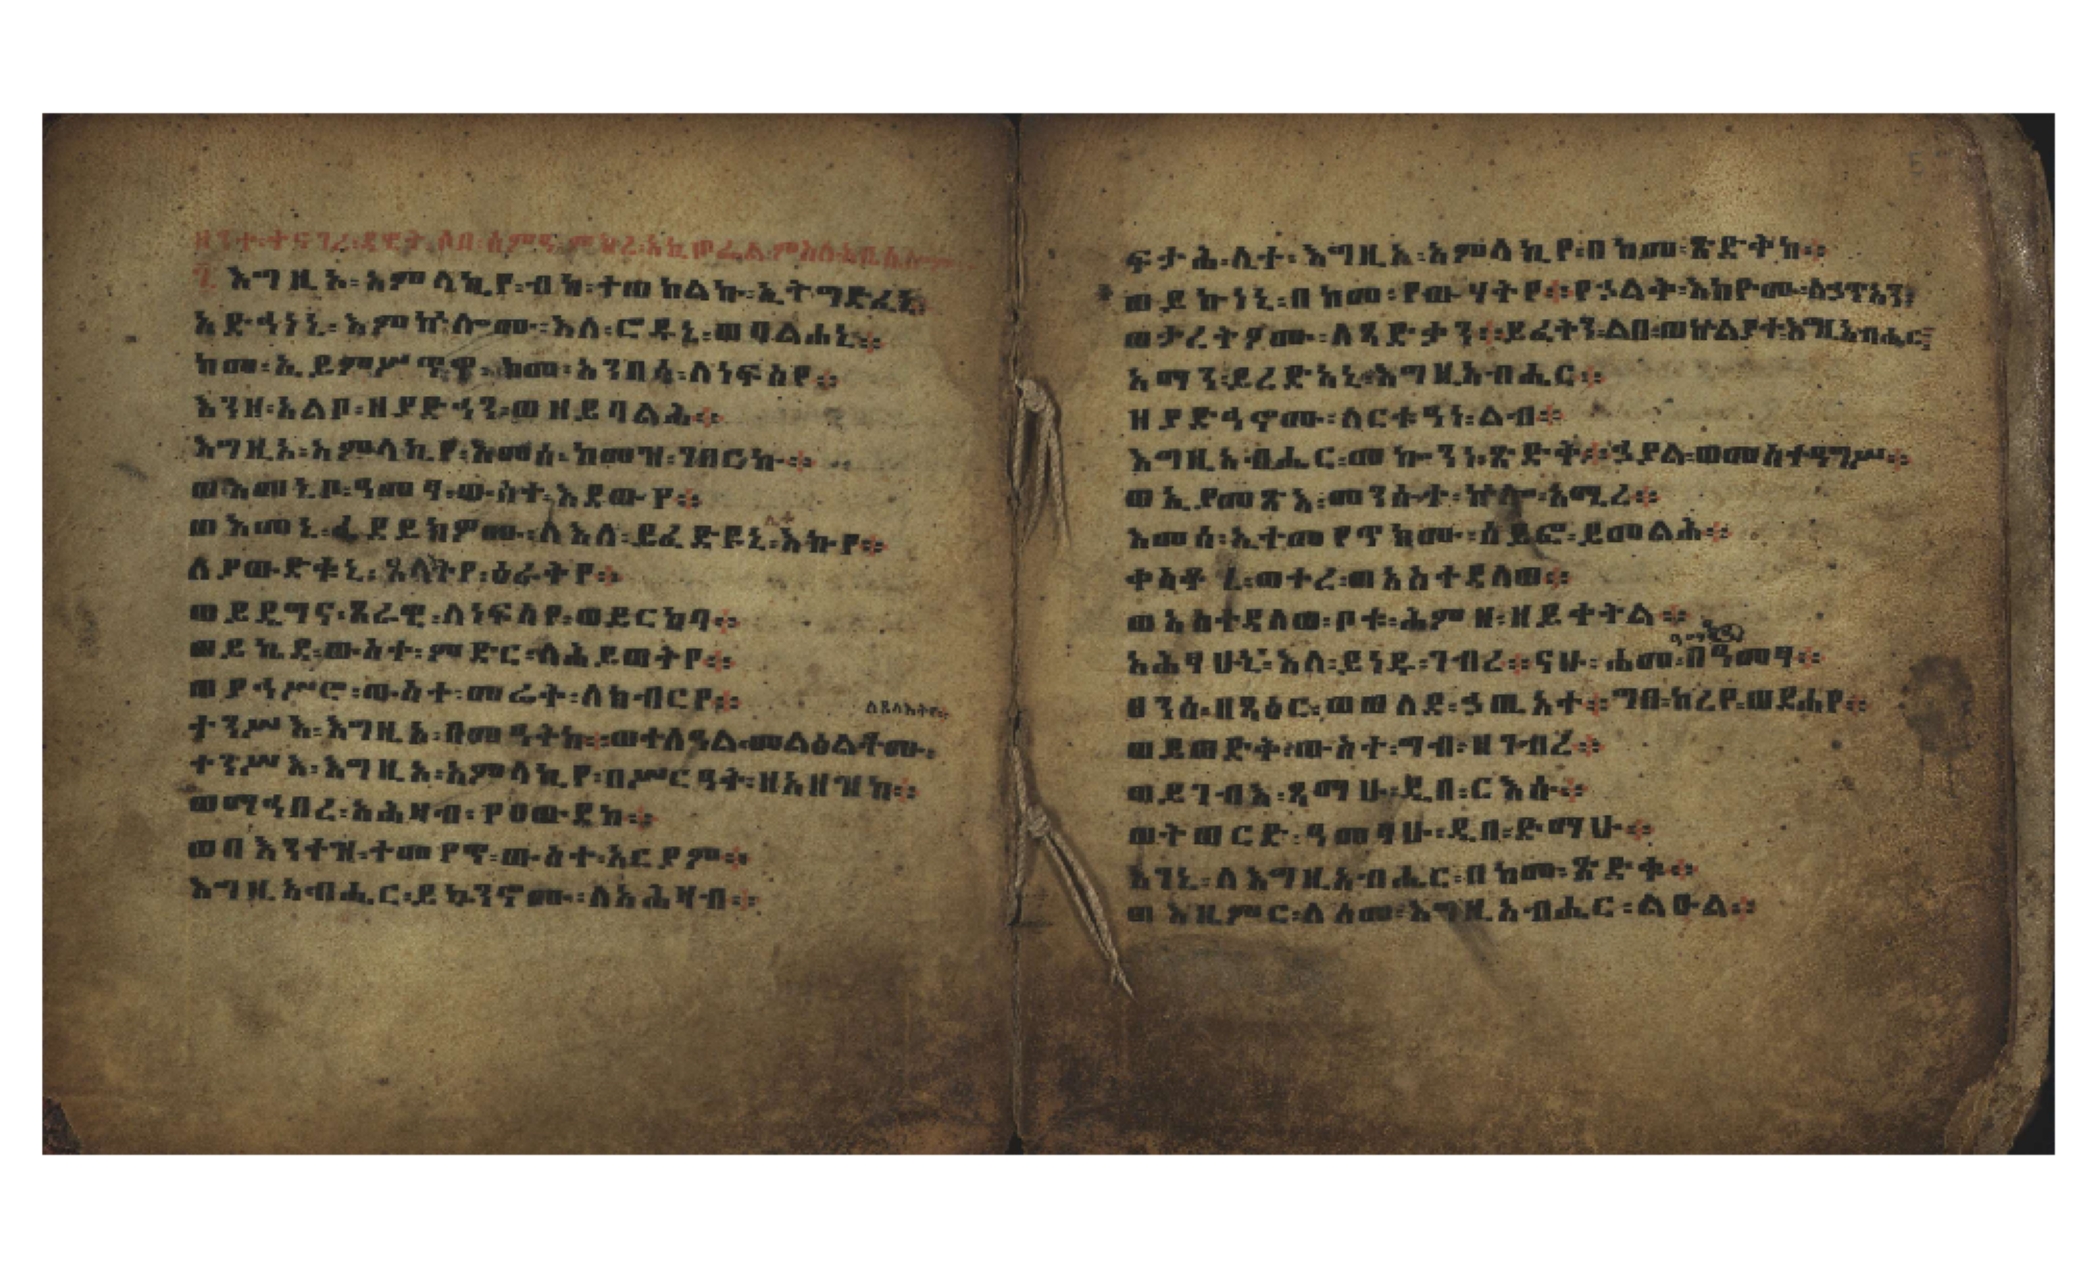 እግዚኦ፡አምላኪየ፡ብከ፡ተወከልኩ፡ኢትግድፈኒ።
አድኅነኒ፡እምኵሎሙ፡እለ፡ሮዱኒ፡ወባልሐኒ።
ከመ፡ኢይምሥጥዋ፡ከመ፡አንበሳ፡ለነፍስየ።
እንዘ፡አልቦ፡ዘያድኅን፡ወዘይባልሕ።
እግዚኦ፡አምላኪየ፡እመሰ፡ከመዝ፡ገበርኩ።
ወእመኒቦ፡ዓመፃ፡ውስተ፡እደውየ።
ወእመኒ፡ፈደይክዎሙ፡ለእለ፡ይፈድዩኒ፡እኩየ።
ለያውድቁኒ፡ጸላትየ፡ዕራቅየ።
ወይዴግና፡ጸራዊ፡ለነፍስየ፡ወይርከባ።
ወይኪዳ፡ውስተ፡ምድር፡ለሕይወትየ።
ወያኅሥሮ፡ውስተ፡መሬት፡ለክብርየ።
ለጸላእትየ።
ተንሥእ፡እግዚኦ፡በመዓትከ።ወተለዓል፡መልዕልቶሙ፡
ተንሥእ፡እግዚኦ፡አምላኪየ፡በሥርዓት፡ዘአዘዝከ።
ወማኅበረ፡አሕዛብ፡የዐውደከ።
ወበእንተዝ፡ተመየጥ፡ውስተ፡አርያም።
እግዚአብሔር፡ይኴንኖሙ፡ለአሕዛብ።
ፍታሕ፡ሊተ፡እግዚኦ፡አምላኪየ፡በከመ፡ጽድቅከ።
ወይኩነኒ፡በከመ፡የውሃትየ።የኃልቅ፡እከዮሙ፡ለኃጥአን፡
ወታረትዖሙ፡ለጻድቃን።ይፈትን፡ልበ፡ወኵልያተ፡እግዚአብሔር፡
አማን፡ይረድአኒ፡እግዚአብሔር።
ዘያድኅኖሙ፡ለርቱዓነ፡ልብ።
እግዚአብሔር፡መኰንነ፡ጽድቅ።ኃያል፡ወመስተዓግሥ።
ወኢያመጽእ፡መንሱተ፡ኵሎ፡አሚረ።
እመሰ፡ኢተመየጥክሙ፡ሰይፎ፡ይመልሕ።
ቀስቶኒ፡ወተረ፡ወአስተዳለወ።
ወአስተዳለወ፡ቦቱ፡ሕምዘ፡ዘይቀትል።
አሕፃሁኒ፡እለ፡ይነዱ፡ገብረ።ናሁ፡ሐመ፡በዓመፃ።
ፀንሰ፡ዘጻዕር፡ወወለደ፡ኃጢአተ።ግበ፡ከረየ፡ወደሐየ።
ወይወድቅ፡ውስተ፡ግብ፡ዘገብረ።
ወይገብእ፡ጻማሁ፡ዲበ፡ርእሱ።
ወትወርድ፡ዓመፃሁ፡ዲበ፡ድማሁ።
እገኒ፡ለእግዚአብሔር፡በከመ፡ጽድቁ።
ወእዜምር፡ለስመ፡እግዚአብሔር፡ልዑል።